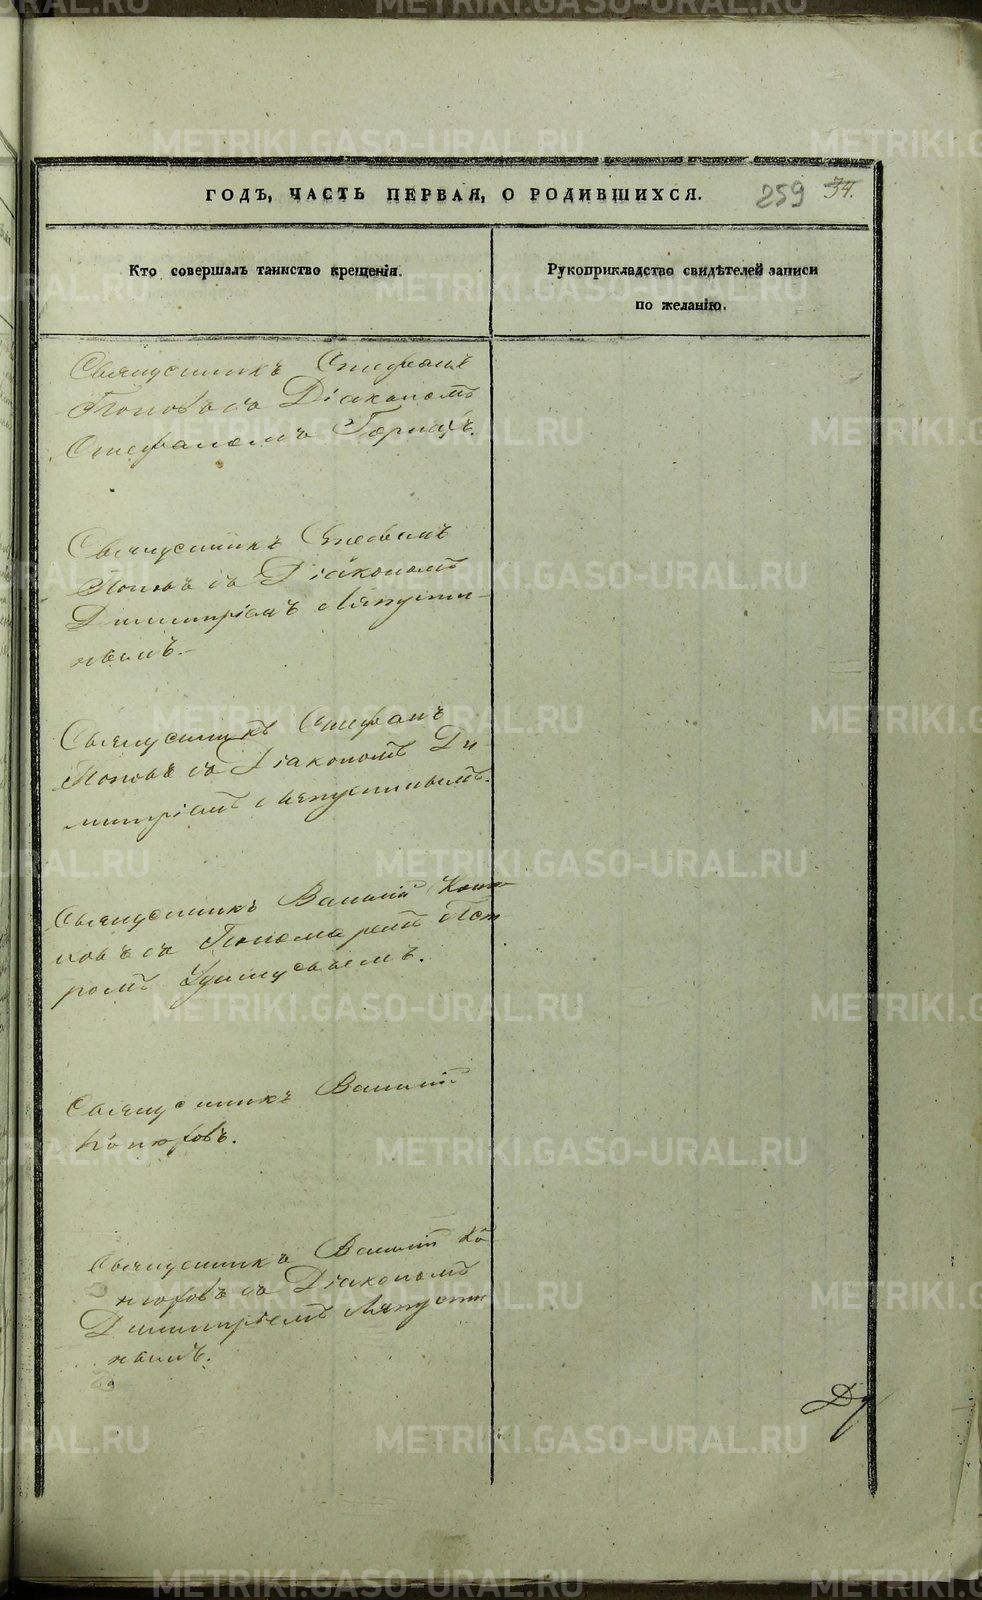 METRIKI.GASO-URAL.RU
ГОДЪ, ЧАСТЬ ПЕРВАЯ, О РОДИВШИХСЯ.
259 34.
Кто совершалъ таинство крещенія.
Рукоприкладство свидѣтелей записи
по желанію.
Священникъ Стефанъ
Поповъ съ Діакономъ
Стефаномъ
Священникъ Стефанъ
Поповъ съ Діакономъ
Димитріемъ Ляпусти-
нымъ.-
Священникъ Стефанъ
Поповъ съ Діакономъ Ди
митріемъ Ляпустинымъ.
Священникъ Василій Коню
ховъ съ Пономаремъ Пет
ромъ
Священникъ Василій
Конюховъ.
Священникъ Василій Ко
нюховъ съ Діакономъ
Димитріемъ Ляпусти
нымъ.